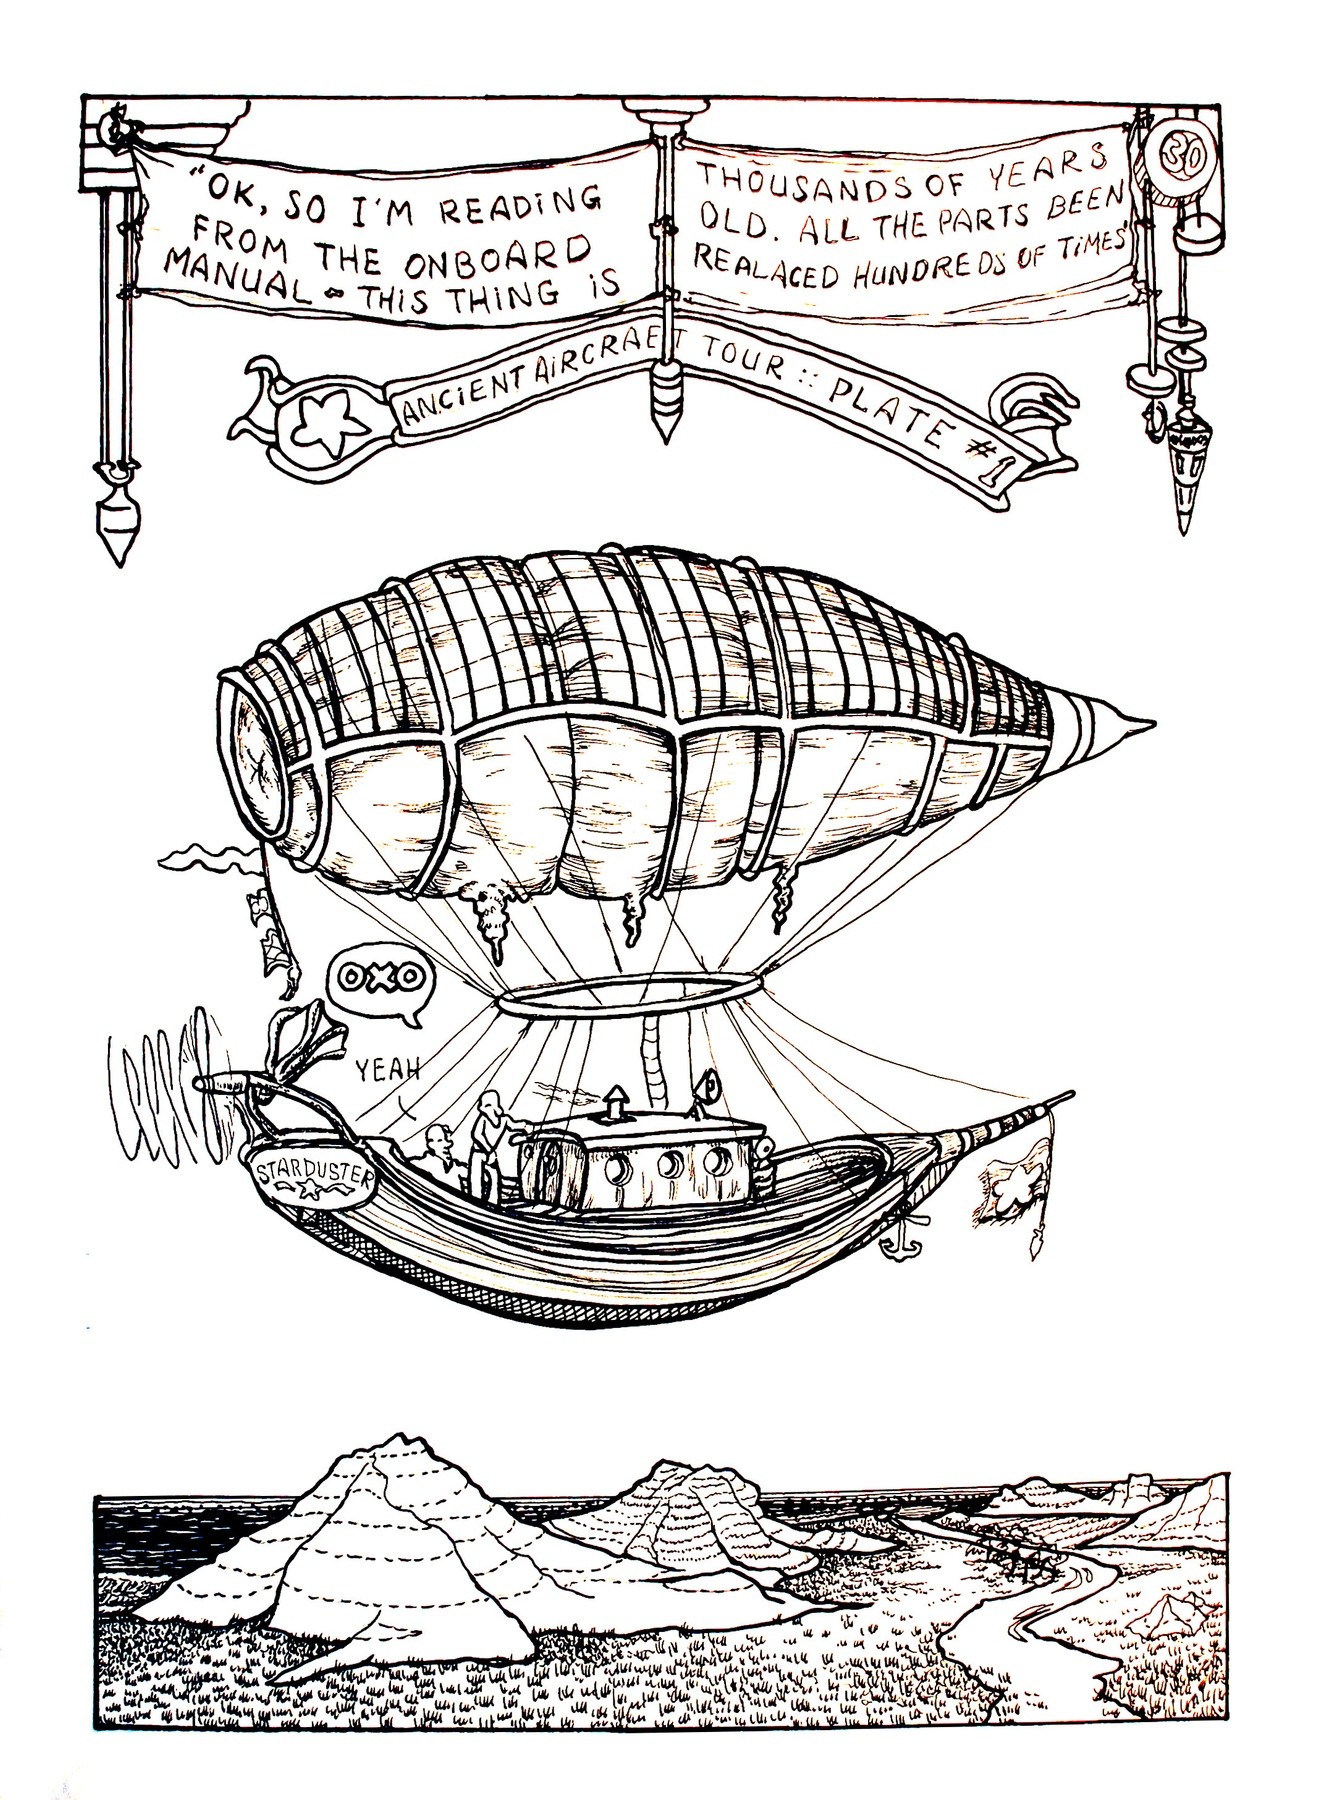 "OK, SO I'M READING
FROM THE ONBOARD
MANUAL - THIS THING IS
THOUSANDS OF YEARS
OLD. ALL THE PARTS BEEN
REALACED HUNDREDS OF TIMES"
30
ANCIENT AIRCRAFT TOUR :: PLATE #1
OXO
YEAH
STARDUSTER